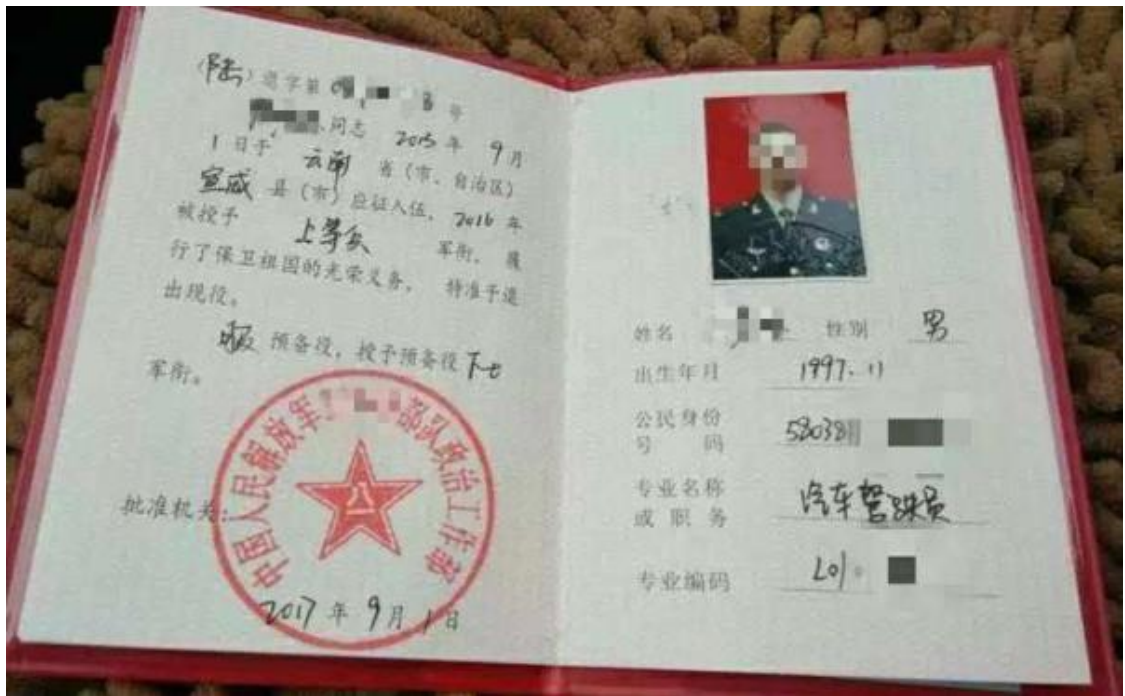 （陆）退字第 号
同志 2015 年 9 月
1 日于 云南 省（市、自治区）
宣威 县（市）应征入伍，2016 年
被授予 上等兵 军衔，履
行了保卫祖国的光荣义务，特准予退
出现役。
服 预备役，授予预备役 下士
军衔。
中国人民解放军 部队政治工作部
批准机关：
2017 年 9 月 1 日
姓名 性别 男
出生年月 1997.11
公民身份
号码 58038
专业名称 汽车驾驶员
或职务
专业编码 L01